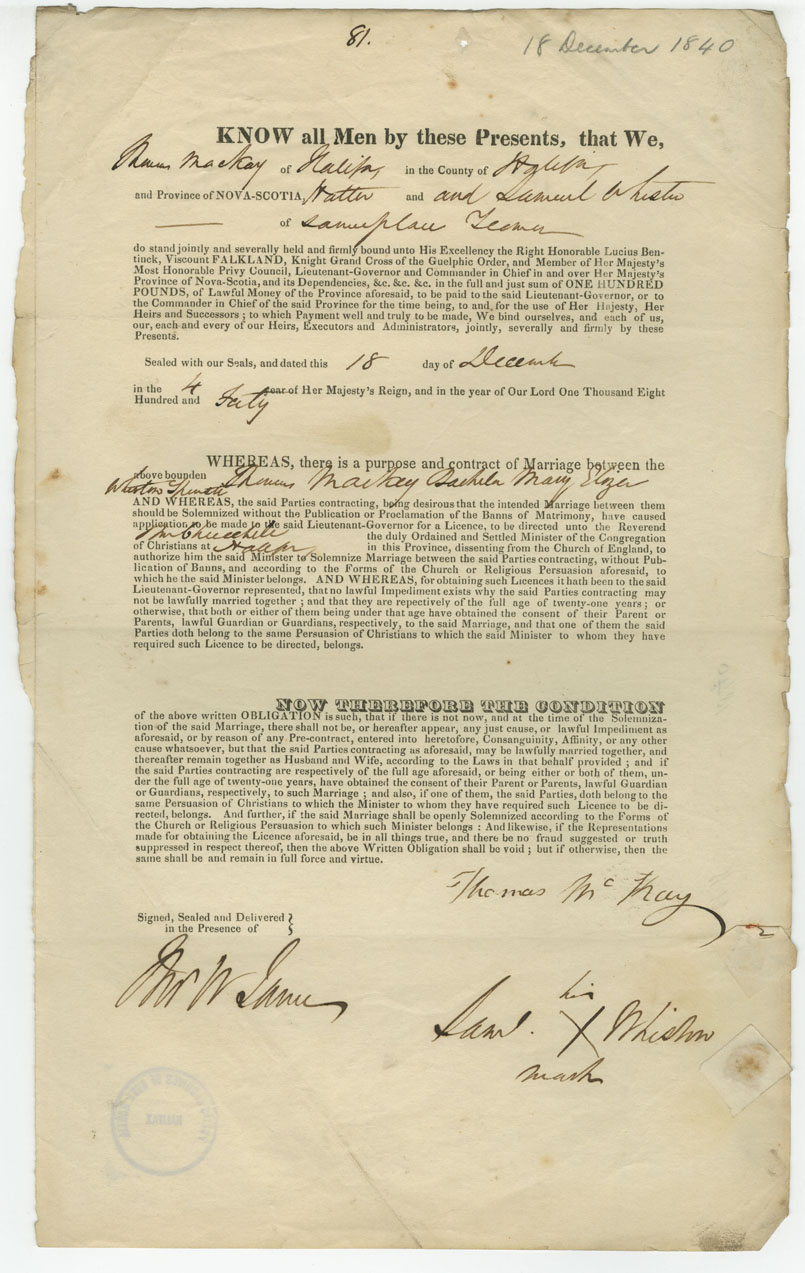 81.
18 December 1840
KNOW all Men by these Presents, that We,
Thomas Mackay of Halifax in the County of Halifax
and Province of NOVA-SCOTIA, Hatter and and Samuel Whiston
of same place Yeoman
do stand jointly and severally held and firmly bound unto His Excellency the Right Honorable Lucius Ben-
tinck, Viscount FALKLAND, Knight Grand Cross of the Guelphic Order, and Member of Her Majesty's
Most Honorable Privy Council, Lieutenant-Governor and Commander in Chief in and over Her Majesty's
Province of Nova-Scotia, and its Dependencies, &c. &c. &c. in the full and just sum of ONE HUNDRED
POUNDS, of Lawful Money of the Province aforesaid, to be paid to the said Lieutenant-Governor, or to
the Commander in Chief of the said Province for the time being, to and, for the use of Her Majesty, Her
Heirs and Successors ; to which Payment well and truly to be made, We bind ourselves, and each of us,
our, each and every of our Heirs, Executors and Administrators, jointly, severally and firmly by these
Presents.
Sealed with our Seals, and dated this 18 day of December
in the 4 year of Her Majesty's Reign, and in the year of Our Lord One Thousand Eight
Hundred and Forty
WHEREAS, there is a purpose and contract of Marriage between the
above bounden Thomas Mackay Bachelor Mary Eliza
Whiston Spinster
AND WHEREAS, the said Parties contracting, being desirous that the intended Marriage between them
should be Solemnized without the Publication or Proclamation of the Banns of Matrimony, have caused
application to be made to the said Lieutenant-Governor for a Licence, to be directed unto the Reverend
Mr Churchill the duly Ordained and Settled Minister of the Congregation
of Christians at Halifax in this Province, dissenting from the Church of England, to
authorize him the said Minister to Solemnize Marriage between the said Parties contracting, without Pub-
lication of Banns, and according to the Forms of the Church or Religious Persuasion aforesaid, to
which he the said Minister belongs. AND WHEREAS, for obtaining such Licences it hath been to the said
Lieutenant-Governor represented, that no lawful Impediment exists why the said Parties contracting may
not be lawfully married together ; and that they are repectively of the full age of twenty-one years ; or
otherwise, that both or either of them being under that age have obtained the consent of their Parent or
Parents, lawful Guardian or Guardians, respectively, to the said Marriage, and that one of them the said
Parties doth belong to the same Persuasion of Christians to which the said Minister to whom they have
required such Licence to be directed, belongs.
NOW THEREFORE THE CONDITION
of the above written OBLIGATION is such, that if there is not now, and at the time of the Solemniza-
tion of the said Marriage, there shall not be, or hereafter appear, any just cause, or lawful Impediment as
aforesaid, or by reason of any Pre-contract, entered into heretofore, Consanguinity, Affinity, or any other
cause whatsoever, but that the said Parties contracting as aforesaid, may be lawfully married together, and
thereafter remain together as Husband and Wife, according to the Laws in that behalf provided ; and if
the said Parties contracting are respectively of the full age aforesaid, or being either or both of them, un-
der the full age of twenty-one years, have obtained the consent of their Parent or Parents, lawful Guardian
or Guardians, respectively, to such Marriage ; and also, if one of them, the said Parties, doth belong to the
same Persuasion of Christians to which the Minister to whom they have required such Licence to be di-
rected, belongs. And further, if the said Marriage shall be openly Solemnized according to the Forms of
the Church or Religious Persuasion to which such Minister belongs : And likewise, if the Representations
made for obtaining the Licence aforesaid, be in all things true, and there be no fraud suggested or truth
suppressed in respect thereof, then the above Written Obligation shall be void ; but if otherwise, then the
same shall be and remain in full force and virtue.
Thomas Mc Kay
Signed, Sealed and Delivered
in the Presence of
W James
his
Saml. X Whiston
mark
HALIFAX